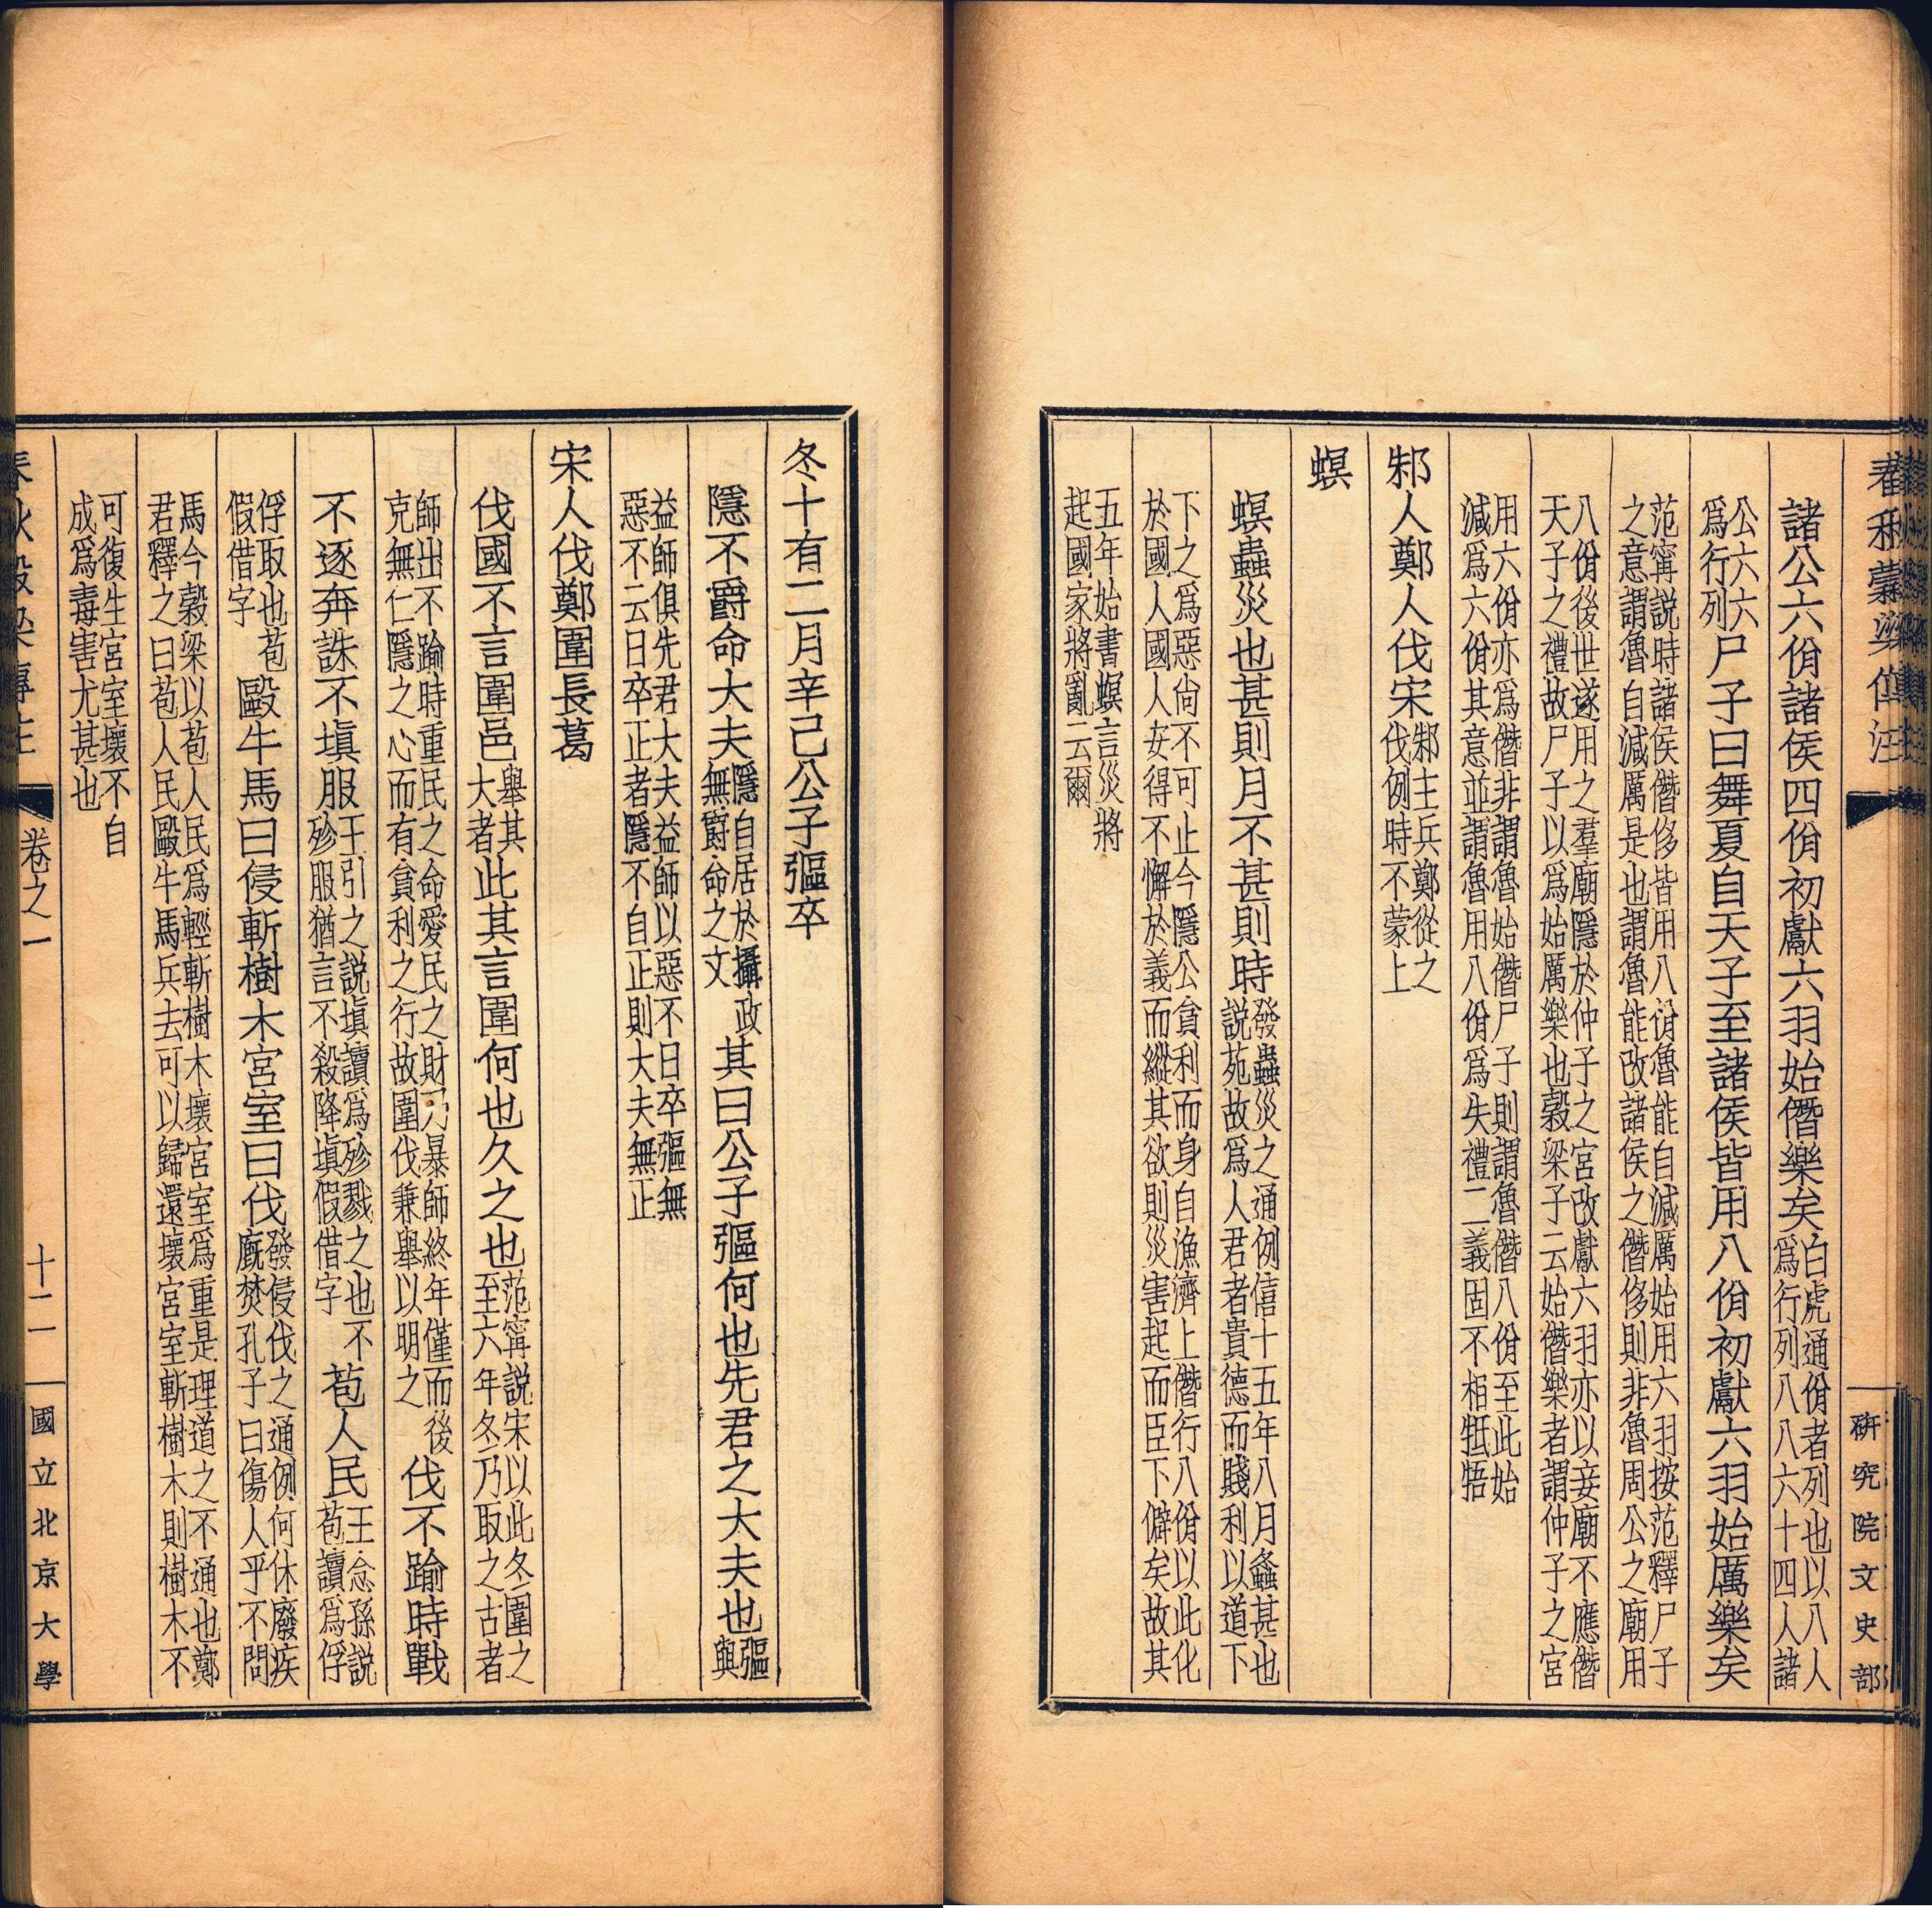 春秋穀梁傳注
研究院文史部
諸公六佾諸侯四佾初獻六羽始僭樂矣白虎通佾者列也以八人
爲行列八八六十四人諸
公六六
爲行列尸子曰舞夏自天子至諸侯皆用八佾初獻六羽始厲樂矣
范甯説時諸侯僭侈皆用八佾魯能自減厲始用六羽按范釋尸子
之意謂魯自減厲是也謂魯能改諸侯之僭侈則非魯周公之廟用
八佾後世遂用之羣廟隱於仲子之宮改獻六羽亦以妾廟不應僭
天子之禮故尸子以爲始厲樂也穀梁子云始僭樂者謂仲子之宮
用六佾亦爲僭非謂魯始僭尸子則謂魯僭八佾至此始
減爲六佾其意並謂魯用八佾爲失禮二義固不相牴牾
邾人鄭人伐宋邾主兵鄭從之
伐例時不蒙上
螟
螟蟲災也甚則月不甚則時發蟲災之通例僖十五年八月螽甚也
説苑故爲人君者貴德而賤利以道下
下之爲惡尙不可止今隱公貪利而身自漁濟上僭行八佾以此化
於國人國人安得不懈於義而縱其欲則災害起而臣下僻矣故其
五年始書螟言災將
起國家將亂云爾
冬十有二月辛巳公子彄卒
隱不爵命大夫隱自居於攝政
無爵命之文其曰公子彄何也先君之大夫也彄
與
益師俱先君大夫益師以惡不日卒彄無
惡不云日卒正者隱不自正則大夫無正
宋人伐鄭圍長葛
伐國不言圍邑舉其
大者此其言圍何也久之也范甯説宋以此冬圍之
至六年冬乃取之古者
師出不踰時重民之命愛民之財乃暴師終年僅而後
克無仁隱之心而有貪利之行故圍伐兼舉以明之伐不踰時戰
不逐奔誅不塡服王引之説塡讀爲殄戮之也不
殄服猶言不殺降塡假借字苞人民王念孫説
苞讀爲俘
俘取也苞
假借字毆牛馬曰侵斬樹木宮室曰伐發侵伐之通例何休廢疾
廐焚孔子曰傷人乎不問
馬今穀梁以苞人民爲輕斬樹木壞宮室爲重是理道之不通也鄭
君釋之曰苞人民毆牛馬兵去可以歸還壞宮室斬樹木則樹木不
可復生宮室壞不自
成爲毒害尤甚也
春秋穀梁傳注
卷之一
十二
國立北京大學